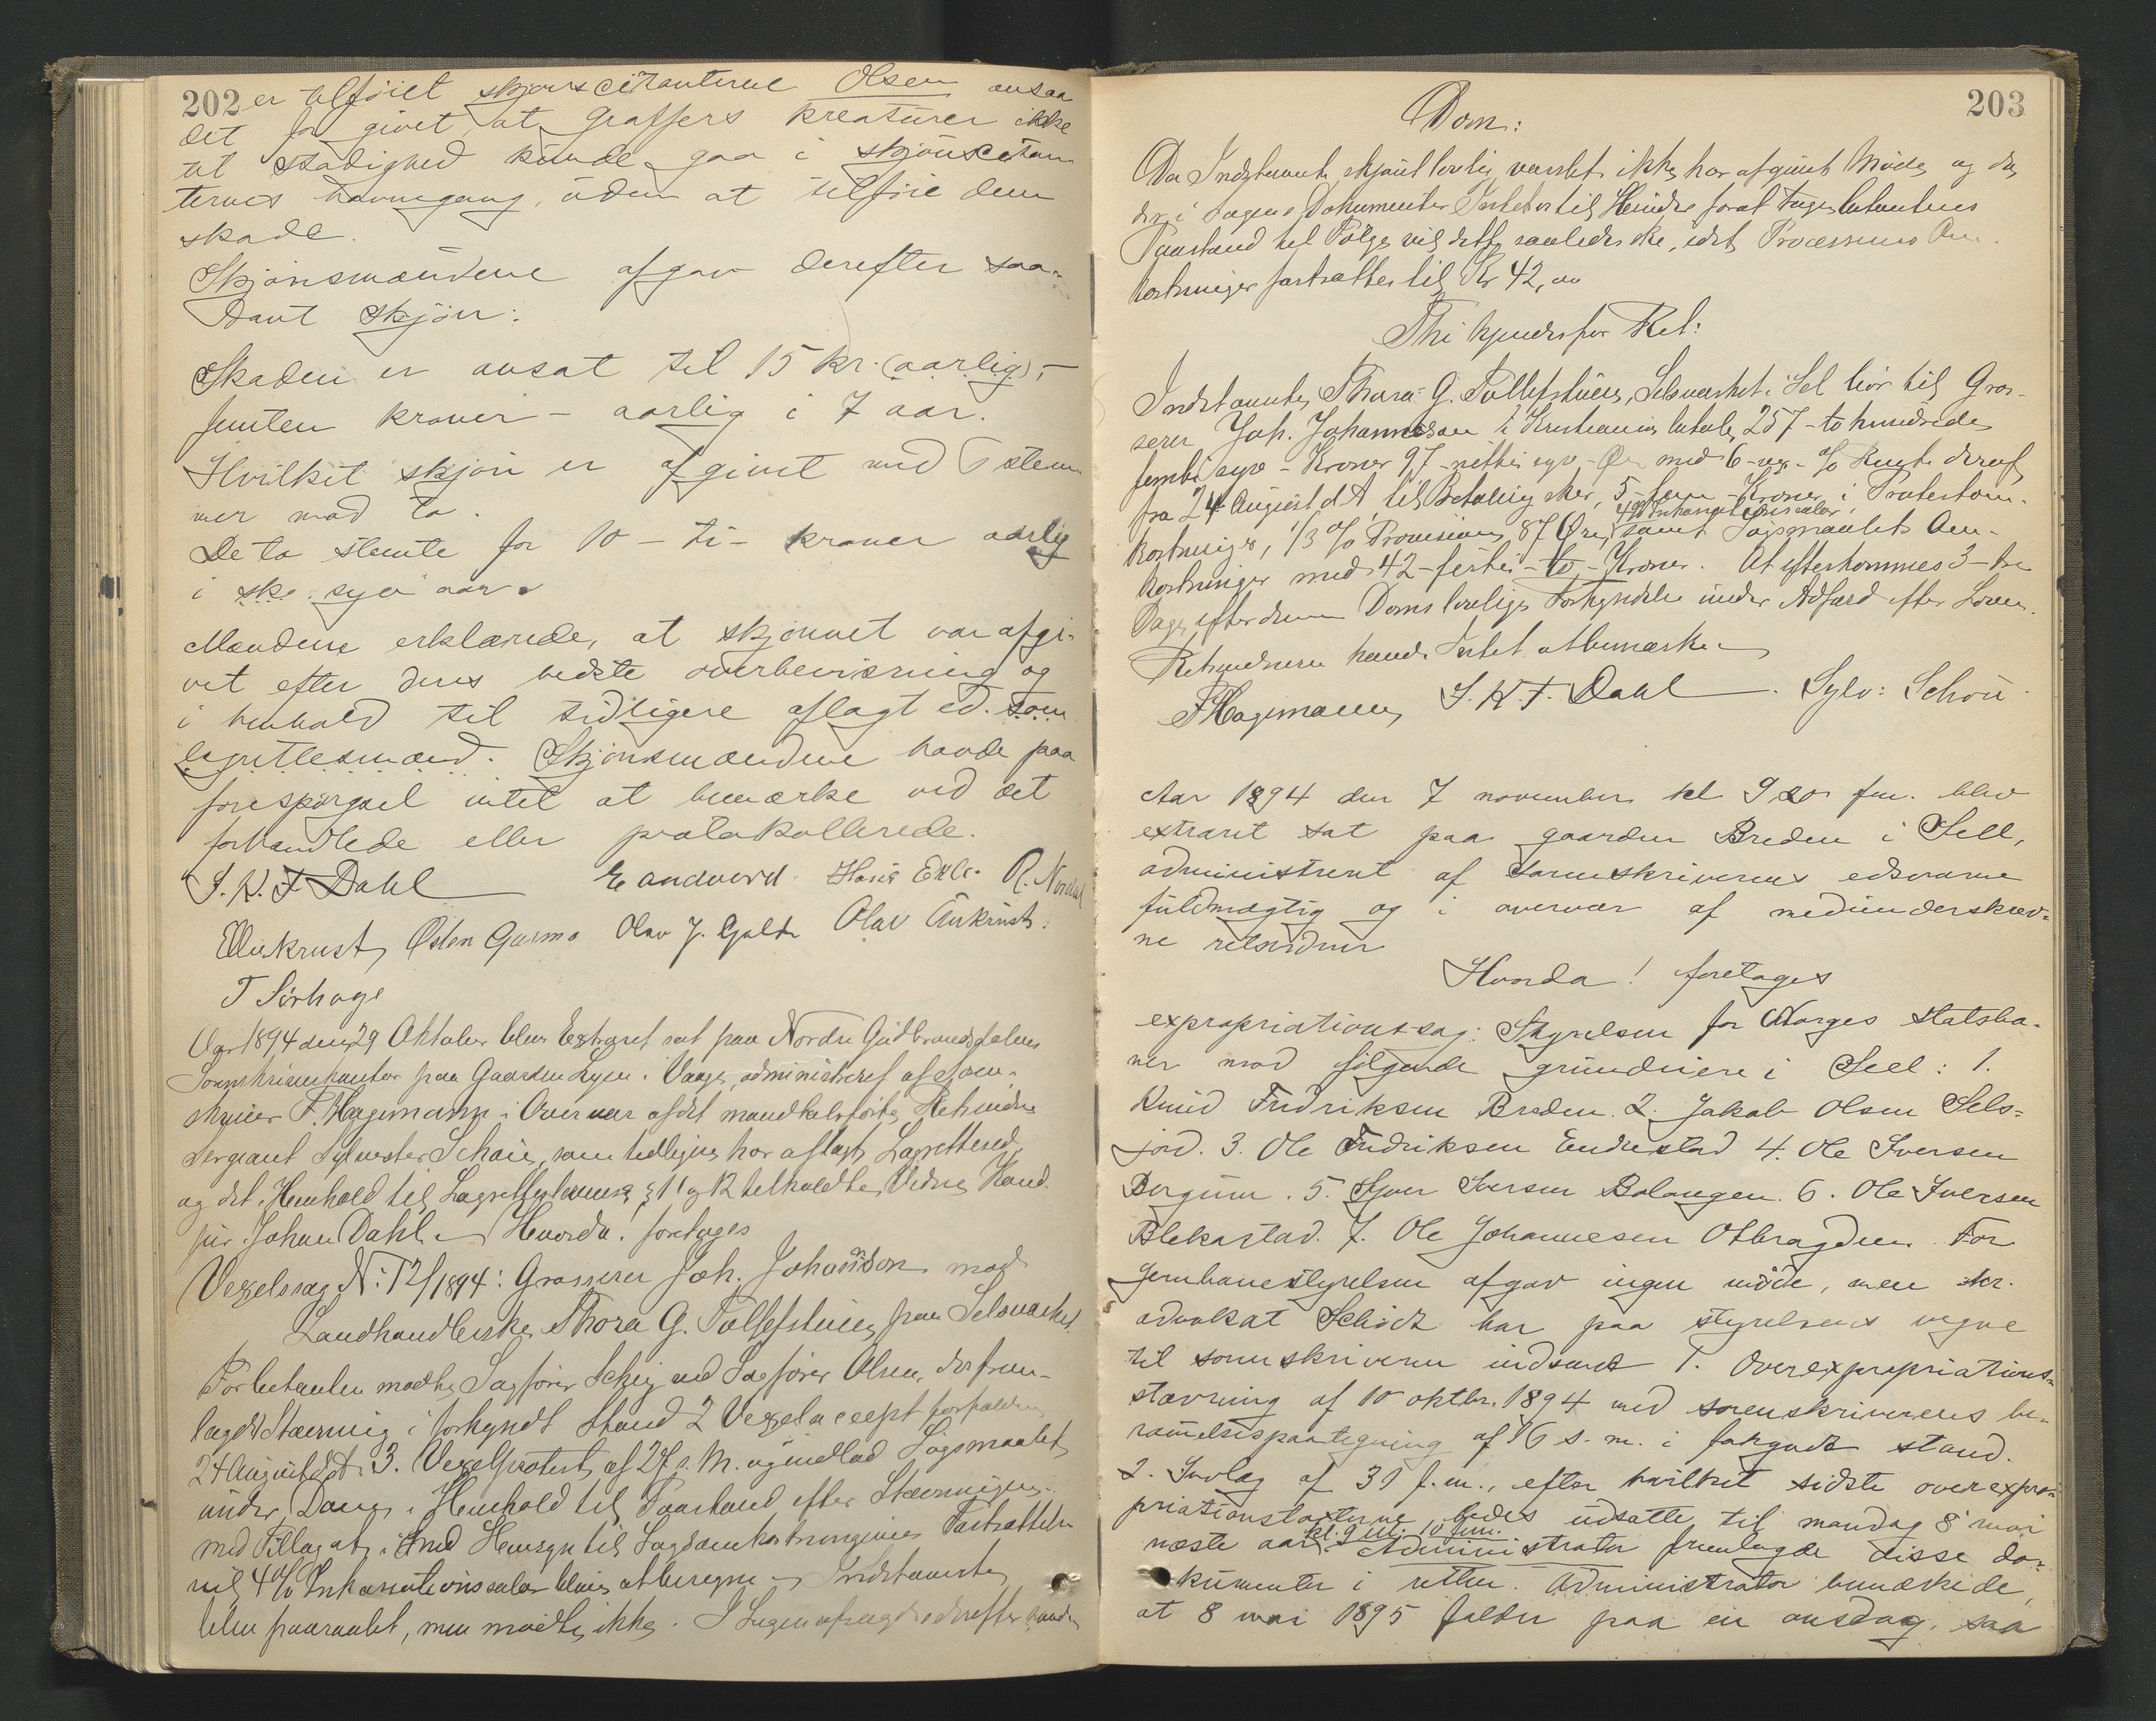 202 er tilföiet skjönscitanterne Olsen ansaa
det for givet, at Graffers kreaturer ikke
til stadighed kunde gaa i skjönscitan
ternes havnegang, uden at tilföie dem
skade.
Skjönsmændene afgav derefter saa-
dant skjön:
Skaden er ansat til 15 kr. (aarlig) -
femten kroner - aarlig i 7 aar.
Hvilket skjön er afgivet med 6 stem
mer mod to.
De to stemte for 10 - ti - kroner aarlig
i syv aar.
Mændene erklærede, at skjönnet var afgi-
vet efter deres bedste overbevisning og
i henhold til tidligere aflagt ed som
lagrettesmænd. Skjönsmændene havde paa
forespörgsel intet at bemærke ved det
forhandlede eller protokollerede.
S. H. F. Dahl E andvord. Hans Ekle. R. Nordal
EAukrust, Østen Garmo Olav J. Galde Olav Aukrust.
T Sörhage
Aar 1894 den 29 Oktober blev Extraret sat paa Nordre Gudbrandsdalens
Sorenskriverkontor paa Gaarden Lyen i Vaage, administreret af Soren-
skriver F. Hagemann i Overvær af det mandtalsförte Retsvidne
Sergeant Sylvester Schou, som tidligere har aflagt Lagretteed,
og det i Henhold til Lagrettelovens § 11 og 12 tilkaldte Vidne Kand.
jur. Johan Dahl. Hvorda! foretoges
Vexelsag N: 12/1894: Grosserer Joh. Johannson mod
Landhandlerske Thora G. Tollefstuen paa Selsværket.
For Citanten mödte Sagförer Schey ved Sagförer Olsen, der frem-
lagde Stævning i forkyndt Stand 2 Vexelaccept forfalden
24 August d.A. 3. Vexelprotest af 27 s. M. og indlod Sögsmaalet
under Dom i Henhold til Paastand efter Stævningen
med Tillæg at, i med Hensyn til Sagsomkostningernes Fastsættelse
vil 4 % Inkassationssalær blive at beregne. Indstævnte
blev paaraabt, men mödte ikke. I Sagen afsagdes derefter saadan
203
Dom:
Da Indstævnte skjönt lovlig varslet ikke har afgivet Möde, og da
der i Sagens Dokumenter Intet er til Hinder for at tage Citantens
Paastand til Fölge vil dette saaledes ske, idet Processens Om-
kostninger fastsættes til Kr 42,00
Thi kjendes for Ret:
Indstævnte, Thora G. Tollefstuen, Selsværket i Sel bör til Gros-
serer Joh. Johannson i Kristiania betale 257 - to hundrede
femti syv - Kroner 97 - nitti syv - Øre med 6 - sex - % Rente deraf
fra 24 August d.A. til Betaling sker, 5 - fem - Kroner i Protestom-
4% Inkassationssalær,
kostninger, 1/3 % Provision, 87 Øre, samt Sögsmaalets Om-
kostninger med 42 - förti - to - Kroner. At efterkommes 3 - tre
Dage efter denne Doms lovlige Forkyndelse under Adfærd efter Loven.
Retsvidnerne havde Intet at bemærke
F Hagemann, S. H. F. Dahl. Sylv: Schou
Aar 1894 den 7 november kl 9,20 fm. blev
extraret sat paa gaarden Breden i Sell,
administreret af sorenskriverens edsvorne
fuldmægtig og i overvær af medunderskrev-
ne retsvidner
Hvorda! foretoges
expropriationssag: Styrelsen for Norges statsba-
ner mod fölgende grundeiere i Seel: 1.
Knud Fredriksen Breden. 2. Jakob Olsen Sels-
jord. 3. Ole Fredriksen Enderstad 4. Ole Iversen
Bergum. 5. Syver Iversen Bolongen. 6. Ole Iversen
Blekastad. 7. Ole Johannesen Ottbragden. For
Jernbanestyrelsen afgav ingen möde, men hr.
advokat Schiötz har paa styrelsens vegne
til sorenskriveren indsendt 1. Overexpropriations-
stævning af 10 oktbr. 1894 med sorenskriverens be-
rammelsespaategning af 16 s. m. i forkyndt stand.
2. Indlæg af 31 f. m., efter hvilket sidste overexpro-
priationstaxterne bedes udsatte til mandag 8 mai
kl. 9 til 10 fm.
næste aar. Administrator fremlagde disse do-
kumenter i retten. Administrator bemærkede,
at 8 mai 1895 falder paa en onsdag, saa